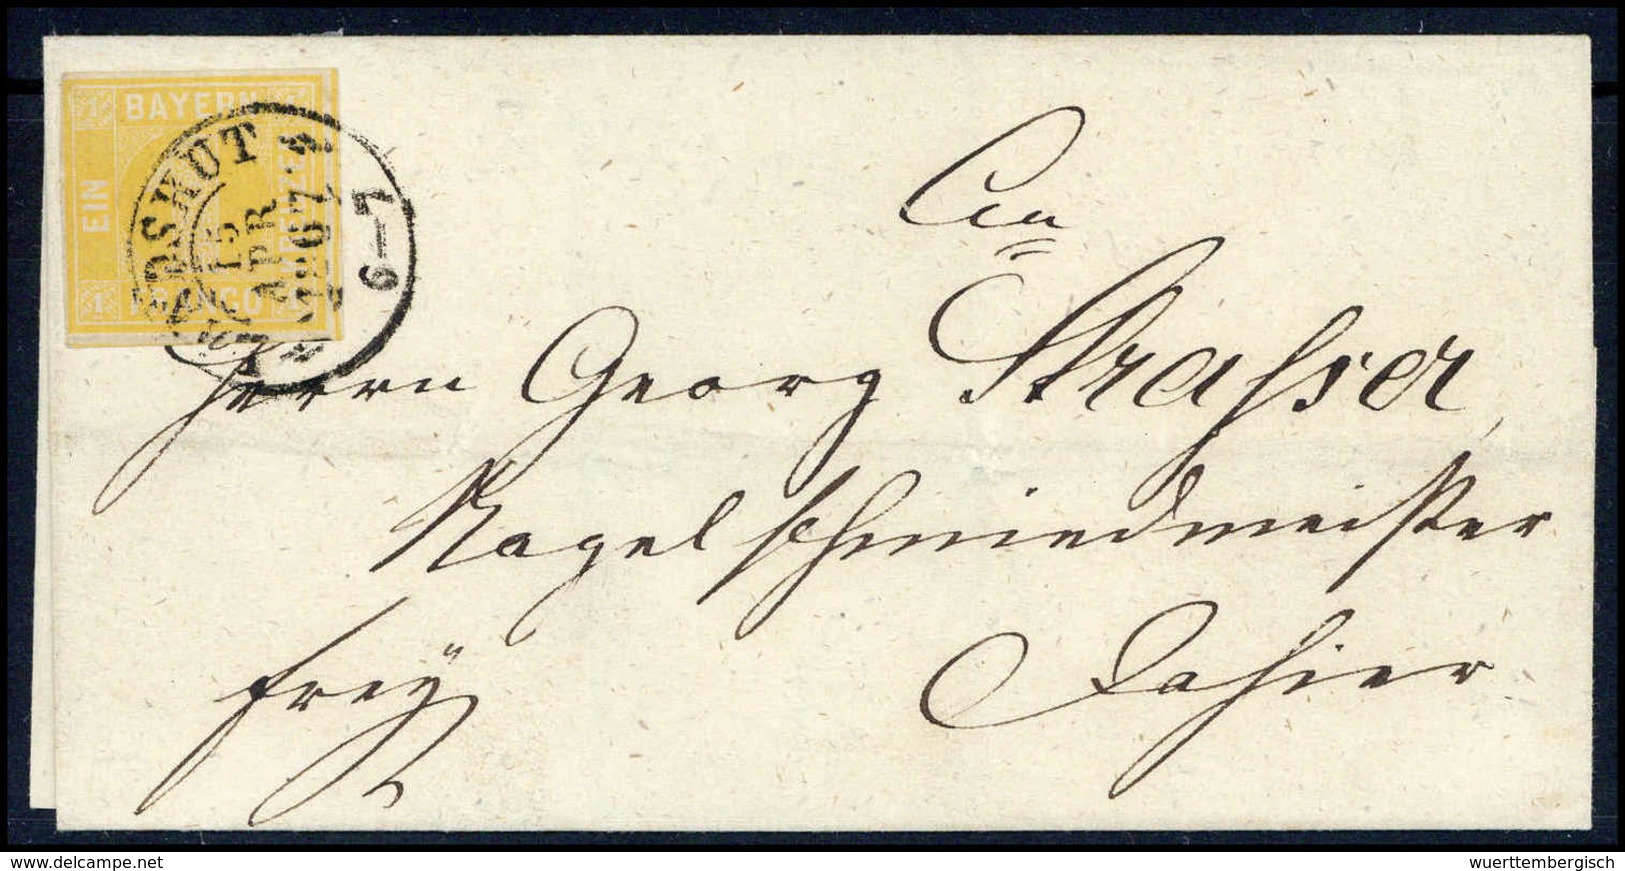 1 BAYERN
EIN KREUZER
1 FRANCO
LANDSHUT
15
APR
1867
6–7
An
Herrn Georg Strasser
Nagelschmiedmeister
frey
Dahier
www.delcampe.net
wuerttembergisch